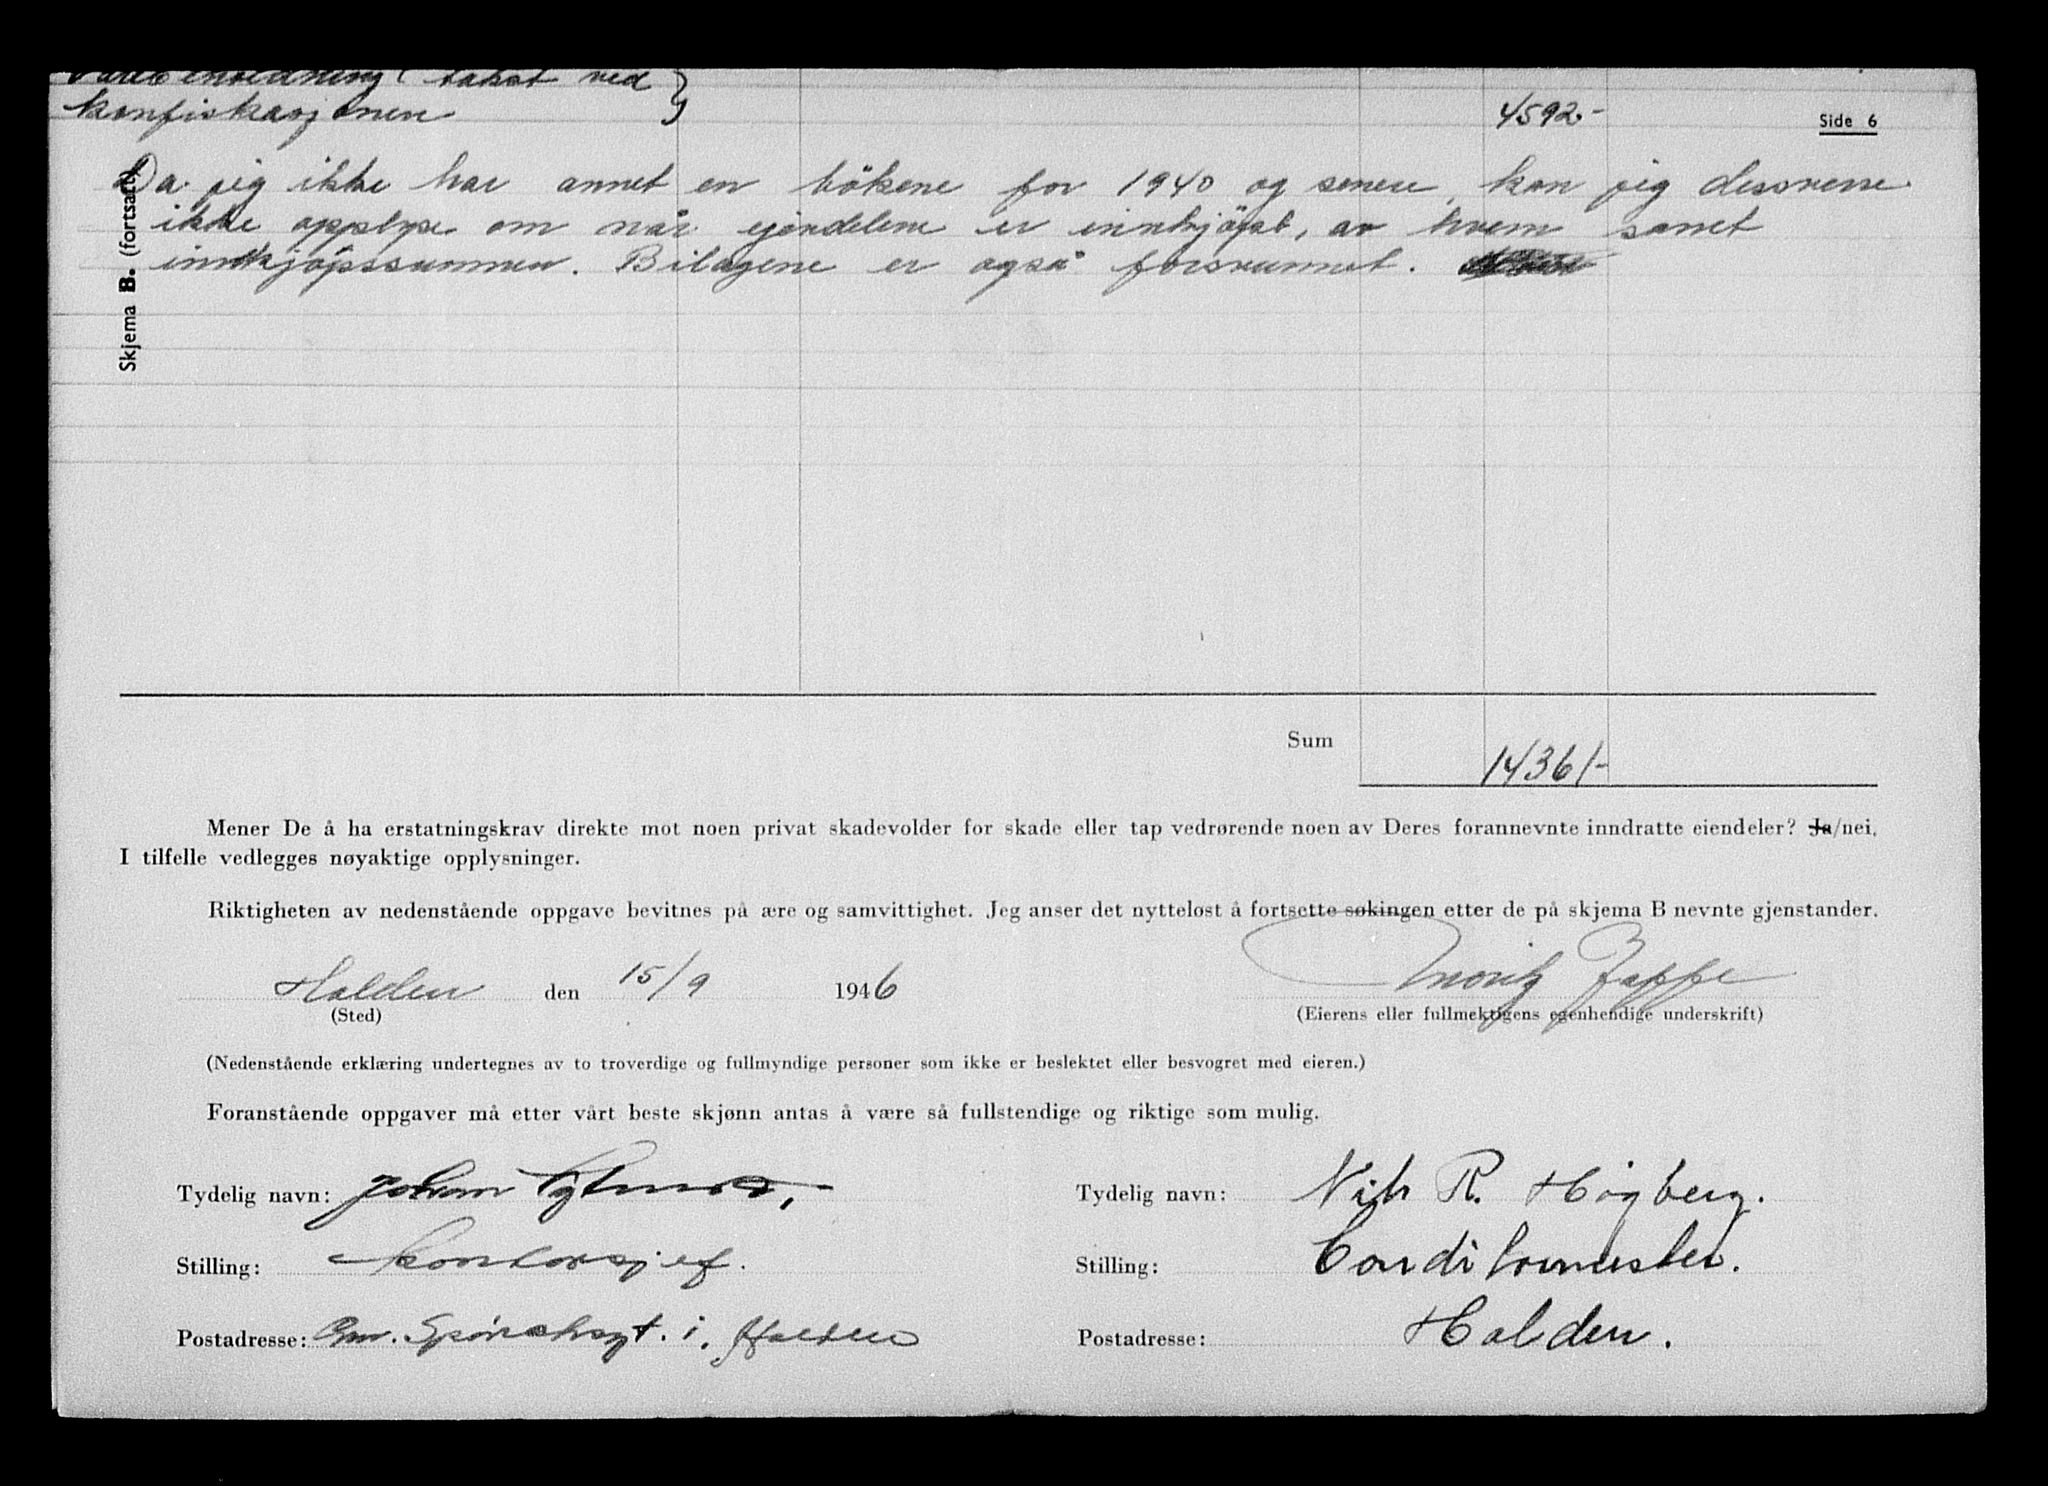 takst ved }
konfiskasjonen 4592.- Side 6
Skjema B. (fortsatt)
Da jeg ikke har annet en bökene for 1940 og senere, kan jeg dessverre
ikke opplyse om når ejendelene er innkjöpt, av hvem samt
innkjöpssummen. Bilagene er også forsvunnet.
Sum 14361-
Mener De å ha erstatningskrav direkte mot noen privat skadevolder for skade eller tap vedrørende noen av Deres forannevnte inndratte eiendeler? Ja/nei.
I tilfelle vedlegges nøyaktige opplysninger.
Riktigheten av nedenstående oppgave bevitnes på ære og samvittighet. Jeg anser det nytteløst å fortsette søkingen etter de på skjema B nevnte gjenstander.
Halden den 15/9 1946 Moritz Jaffe
(Sted) (Eierens eller fullmektigens egenhendige underskrift)
(Nedenstående erklæring undertegnes av to troverdige og fullmyndige personer som ikke er beslektet eller besvogret med eieren.)
Foranstående oppgaver må etter vårt beste skjønn antas å være så fullstendige og riktige som mulig.
Tydelig navn: Johan Tydelig navn: R. Høgberg.
Stilling: Kontorsjef. Stilling: Conditormester.
Postadresse: i. Halden Postadresse: Halden.